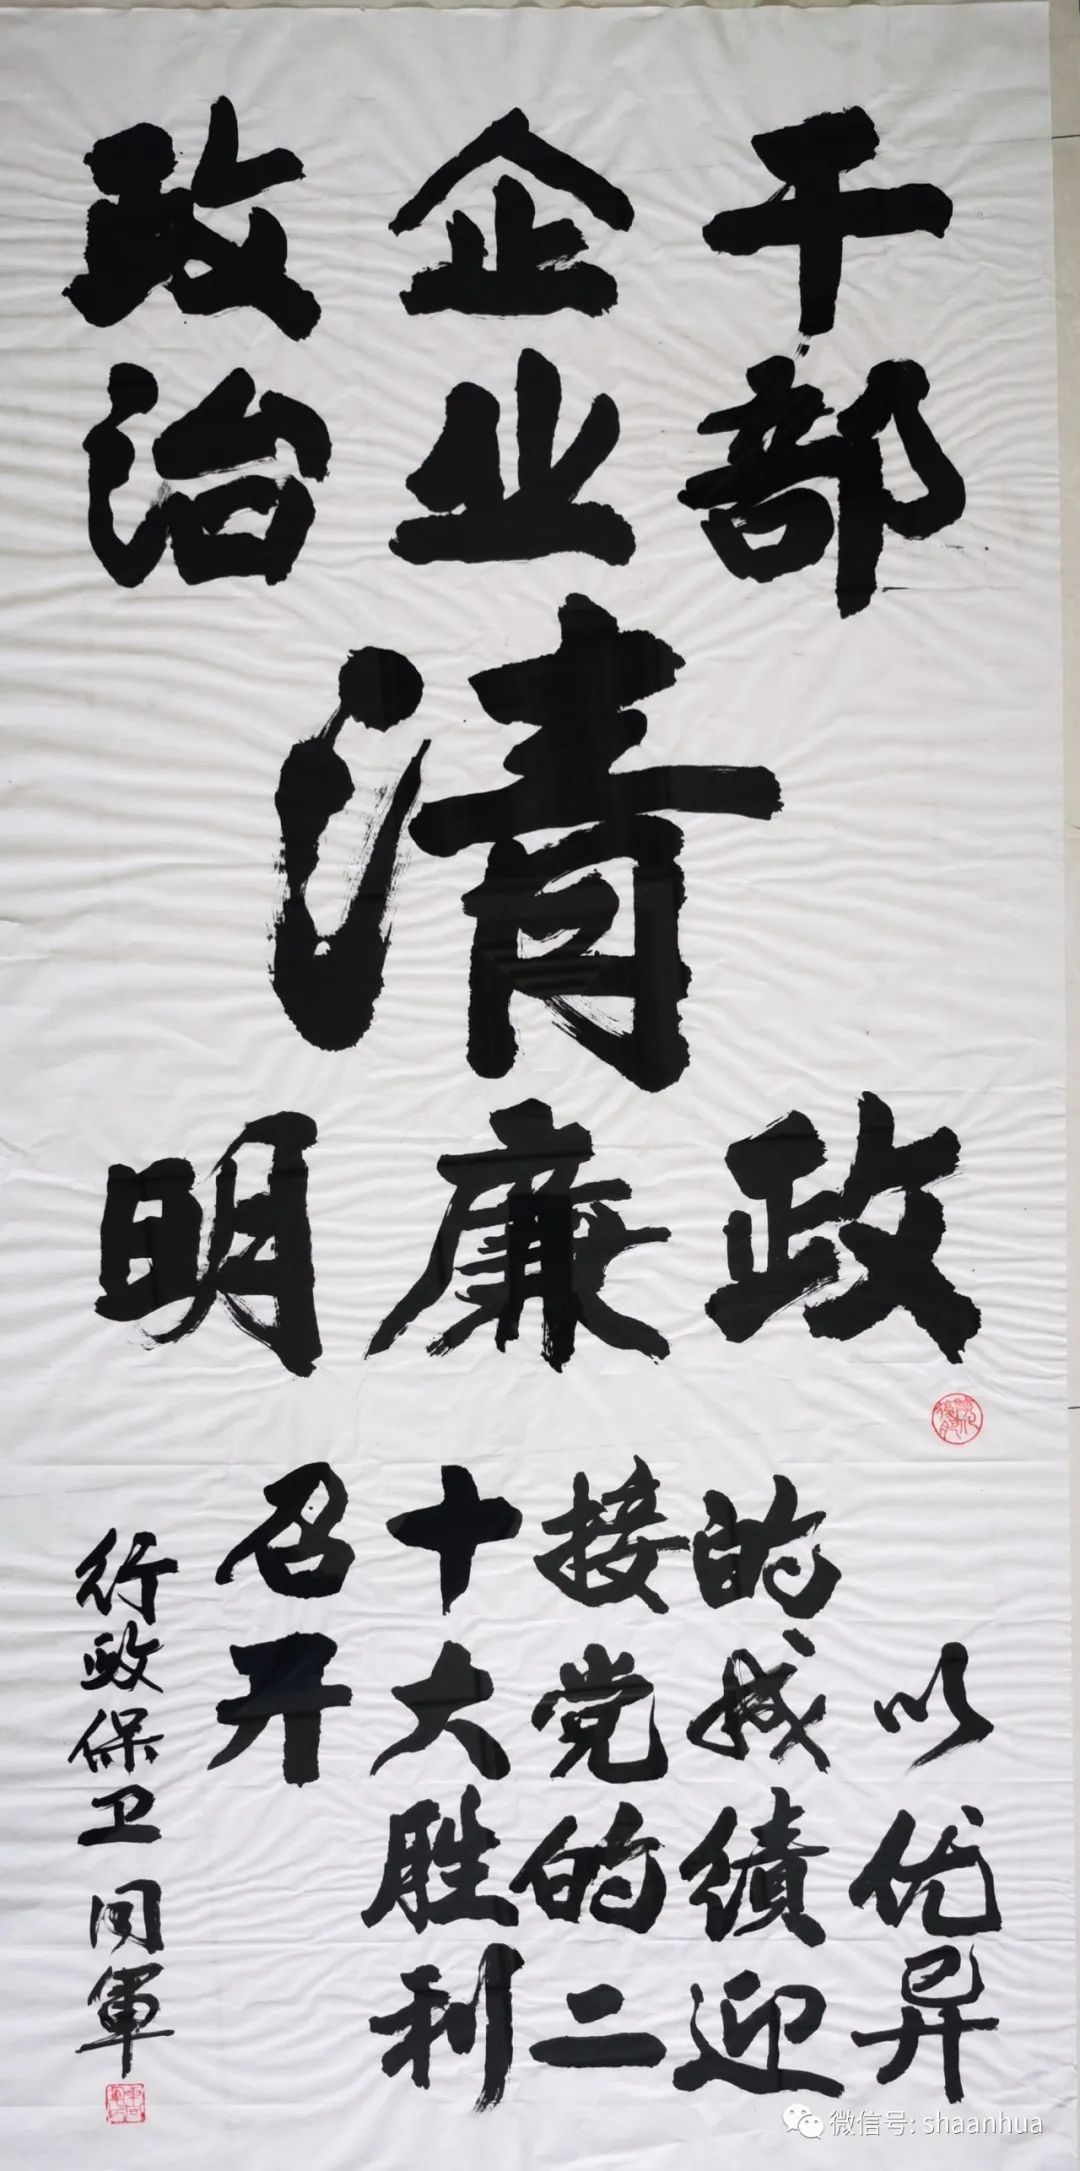 干部
企业
政治
清
政
廉
明
以优异
的成绩迎
接党的二
十大胜利
召开
行政保卫 同軍
微信号: shaanhua